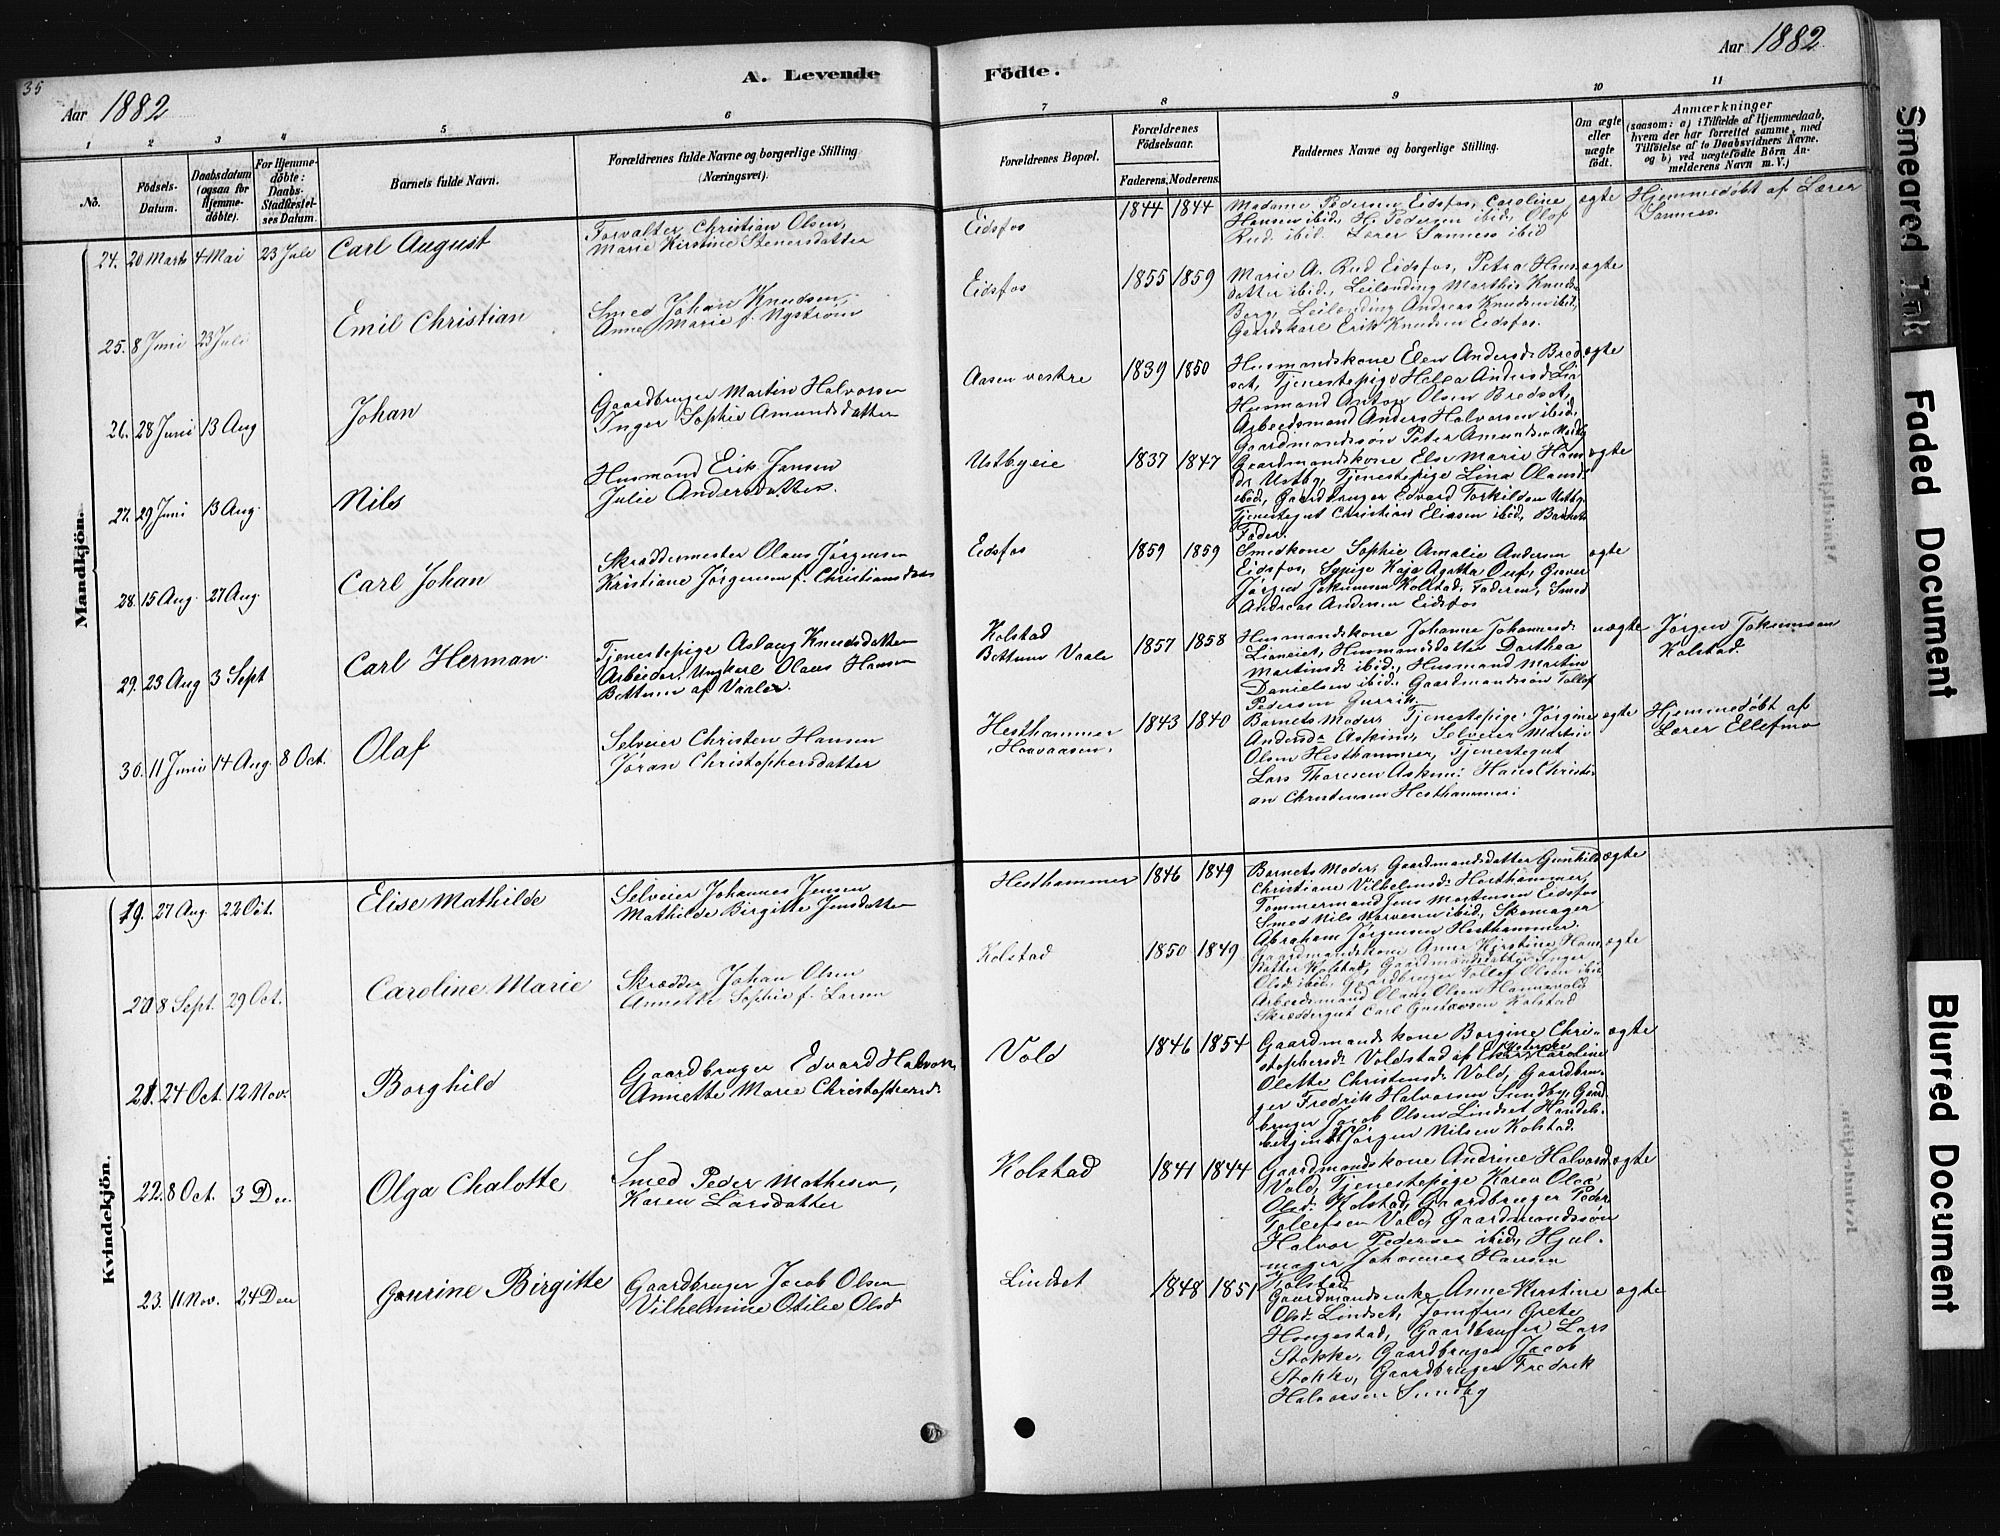 35
A. Levende
Födte.
Aar 1882
Aar 1882
1 2 3 4 5 6
7 8 9 10 11
No.
Födsels-
Datum.
Daabsdatum
(ogsaa for
Hjemme-
döbte).
For Hjemme-
döbte:
Daabs-
Stadfæstel-
ses Datum.
Barnets fulde Navn.
Forældrenes fulde Navne og borgerlige Stilling
(Næringsvei).
Forældrenes Bopæl.
Forældrenes
Födselsaar.
Faderens. Moderens.
Faddernes Navne og borgerlige Stilling.
Om ægte
eller
uægte
födt.
Anmærkninger
(saasom: a) i Tilfælde af Hjemmedaab,
hvem der har forrettet samme, med
Tilföielse af to Daabsvidners Navne.
og b) ved uægtefödte Börn An-
melderens Navn m. V.)
Mandkjön.
24. 20 Marts 4 Mai 23 Juli Carl August
Forvalter Christian Olsen,
Marie Kirstine Stenersdatter
Eidsfos 1844 1844
Madame Pedersen Eidsfos, Caroline
Hansen ibid, H. Pedersen ibid, Olaf
Rud ibid. Lærer Sanness ibid
ægte
Hjemmedøbt af Lærer
Sanness.
25. 8 Juni 23 Juli Emil Christian
Smed Johan Knudsen,
Anne Marie f. Nystrøm
Eidsfos 1855 1859
Marie A. Rud Eidsfos, Petra Hans-
datter ibid., Leilending Marthis Knuds.
Berg, Leilending Andreas Knudsen ibid,
Gaardskarl Erik Knudsen Eidsfos.
ægte
26. 28 Juni 13 Aug Johan
Gaardbruger Martin Halvorsen
Inger Sophie Amundsdatter
Aasen vestre 1839 1850
Husmandskone Elen Andersd. Bred-
set, Tjenestepige Helea Andersd. Lia
Husmand Anton Olsen Bredset,
Arbeidsmand Anders Halvorsen ibid,
Gaardmandssøn Peter Amundsen
ægte
27. 29 Juni 13 Aug. Nils
Husmand Erik Jansen
Julie Andersdatter.
Ustbyeie 1837 1847
Gaardmandskone Else Marie Hans-
dr. Ustby, Tjenestepige Lina Olausd.
ibid, Gaardbruger Edvard Torkildsen Ustby,
Tjenestegut Christian Eliasen ibid, Barnets
Fader.
ægte
28. 15 Aug. 27 Aug. Carl Johan
Skræddermester Olaus Jørgensen
Kristiane Jørgensen f. Christiansdatter
Eidsfos 1859 1859
Smedkone Sophie Amalie Andersen
Eidsfos, Sypige Kaja Agatha
Jørgen Jokumsen Kolstad, Faderen, Smed
Andreas Andersen Eidsfos
ægte
29. 23 Aug 3 Sept Carl Herman.
Tjenestepige Aslaug Knudsdatter
Arbeider, Ungkarl Olaus Hansen
Bettum af Vaaler.
Kolstad
Bettum Vaale 1857 1858
Husmandskone Johanne Johannesd.
Lianeiet, Husmandsdatter Dorthea
Martinsd. ibid, Husmand Martin
Danielsen ibid, Gaardmandssøn Tollef
Pedersen
uægte
Jørgen Jokumsen
Kolstad.
30. 11 Juni 14 Aug. 8 Oct. Olaf
Selveier Christen Hansen
Jøran Christophersdatter
Hesthammer
Haavaasen. 1843 1840
Barnets Moder, Tjenestepige Jørgine
Andersdr. Askim, Selveier Martin
Olsen Hesthammer, Tjenestegut
Lars Thoresen Askim. Hans Christi-
an Christensen Hesthammer.
ægte
Hjemmedøbt af
Lærer Ellefmo
Kvindekjön.
19. 27 Aug. 22 Oct. Elise Mathilde
Selveier Johannes Jensen
Mathilde Birgitte Jensdatter
Hesthammer 1846 1849
Barnets Moder, Gaardmandsdatter Gunhild
Christiane Vilhelmsd. Hesthammer,
Tømmermand Jens Mortensen Eidsfos
Smed Nils Narvesen ibid, Skomager
Abraham Jørgensen Hesthammer.
ægte
20. 8 Sept. 29 Oct. Caroline Marie
Skrædder Johan Olsen
Annette Sophie f. Larsen
Kolstad 1850 1849
Gaardmandskone Anne Kirstine Hans-
datter Kolstad, Gaardmandsdatter Inger
Olsd. ibid, Gaardbruger Tollef Olsen ibid
Arbeidsmand Olaus Olsen Hannevold
Skræddergut Carl Gustavsen Kolstad
ægte
21. 24 Oct. 12 Nov. Borghild
Gaardbruger Edvard Halvors.
Annette Marie Christophersd.
Vold 1846 1854
Gaardmandskone Borgine Chri-
stophersd. Voldstad af Caroline
Olette Christensd. Vold, Gaardbru-
ger Fredrik Halvorsen Sundby, Gaard-
bruger Jacob Olsen Lindset, Handels-
betjent Jørgen Nilsen Kolstad.
ægte
22. 8 Oct. 3 Dec. Olga Chalotte
Smed Peder Mathesen,
Karen Larsdatter
Kolstad 1841 1844
Gaardmandskone Andrine Halvorsd.
Vold, Tjenestepige Karen Olea
Olsd. Kolstad, Gaardbruger Peder
Tollefsen Vold, Gaardmandssøn
Halvor Pedersen ibid, Hjul-
mager Johannes Hansen
Kolstad.
ægte
23. 11 Nov. 24 Dec Gaurine Birgitte
Gaardbruger Jacob Olsen
Vilhelmine Otilie Olsd.
Lindset 1848 1851
Gaardmandsenke Anne Kirstine
Olsd. Lindset, Jomfru Grete
Hougestad, Gaardbruger Lars
Stokke, Gaardbruger Jacob
Stokke, Gaardbruger Fredrik
Halvorsen Sundby
ægte
Smeared Ink
Faded Document
Blurred Document